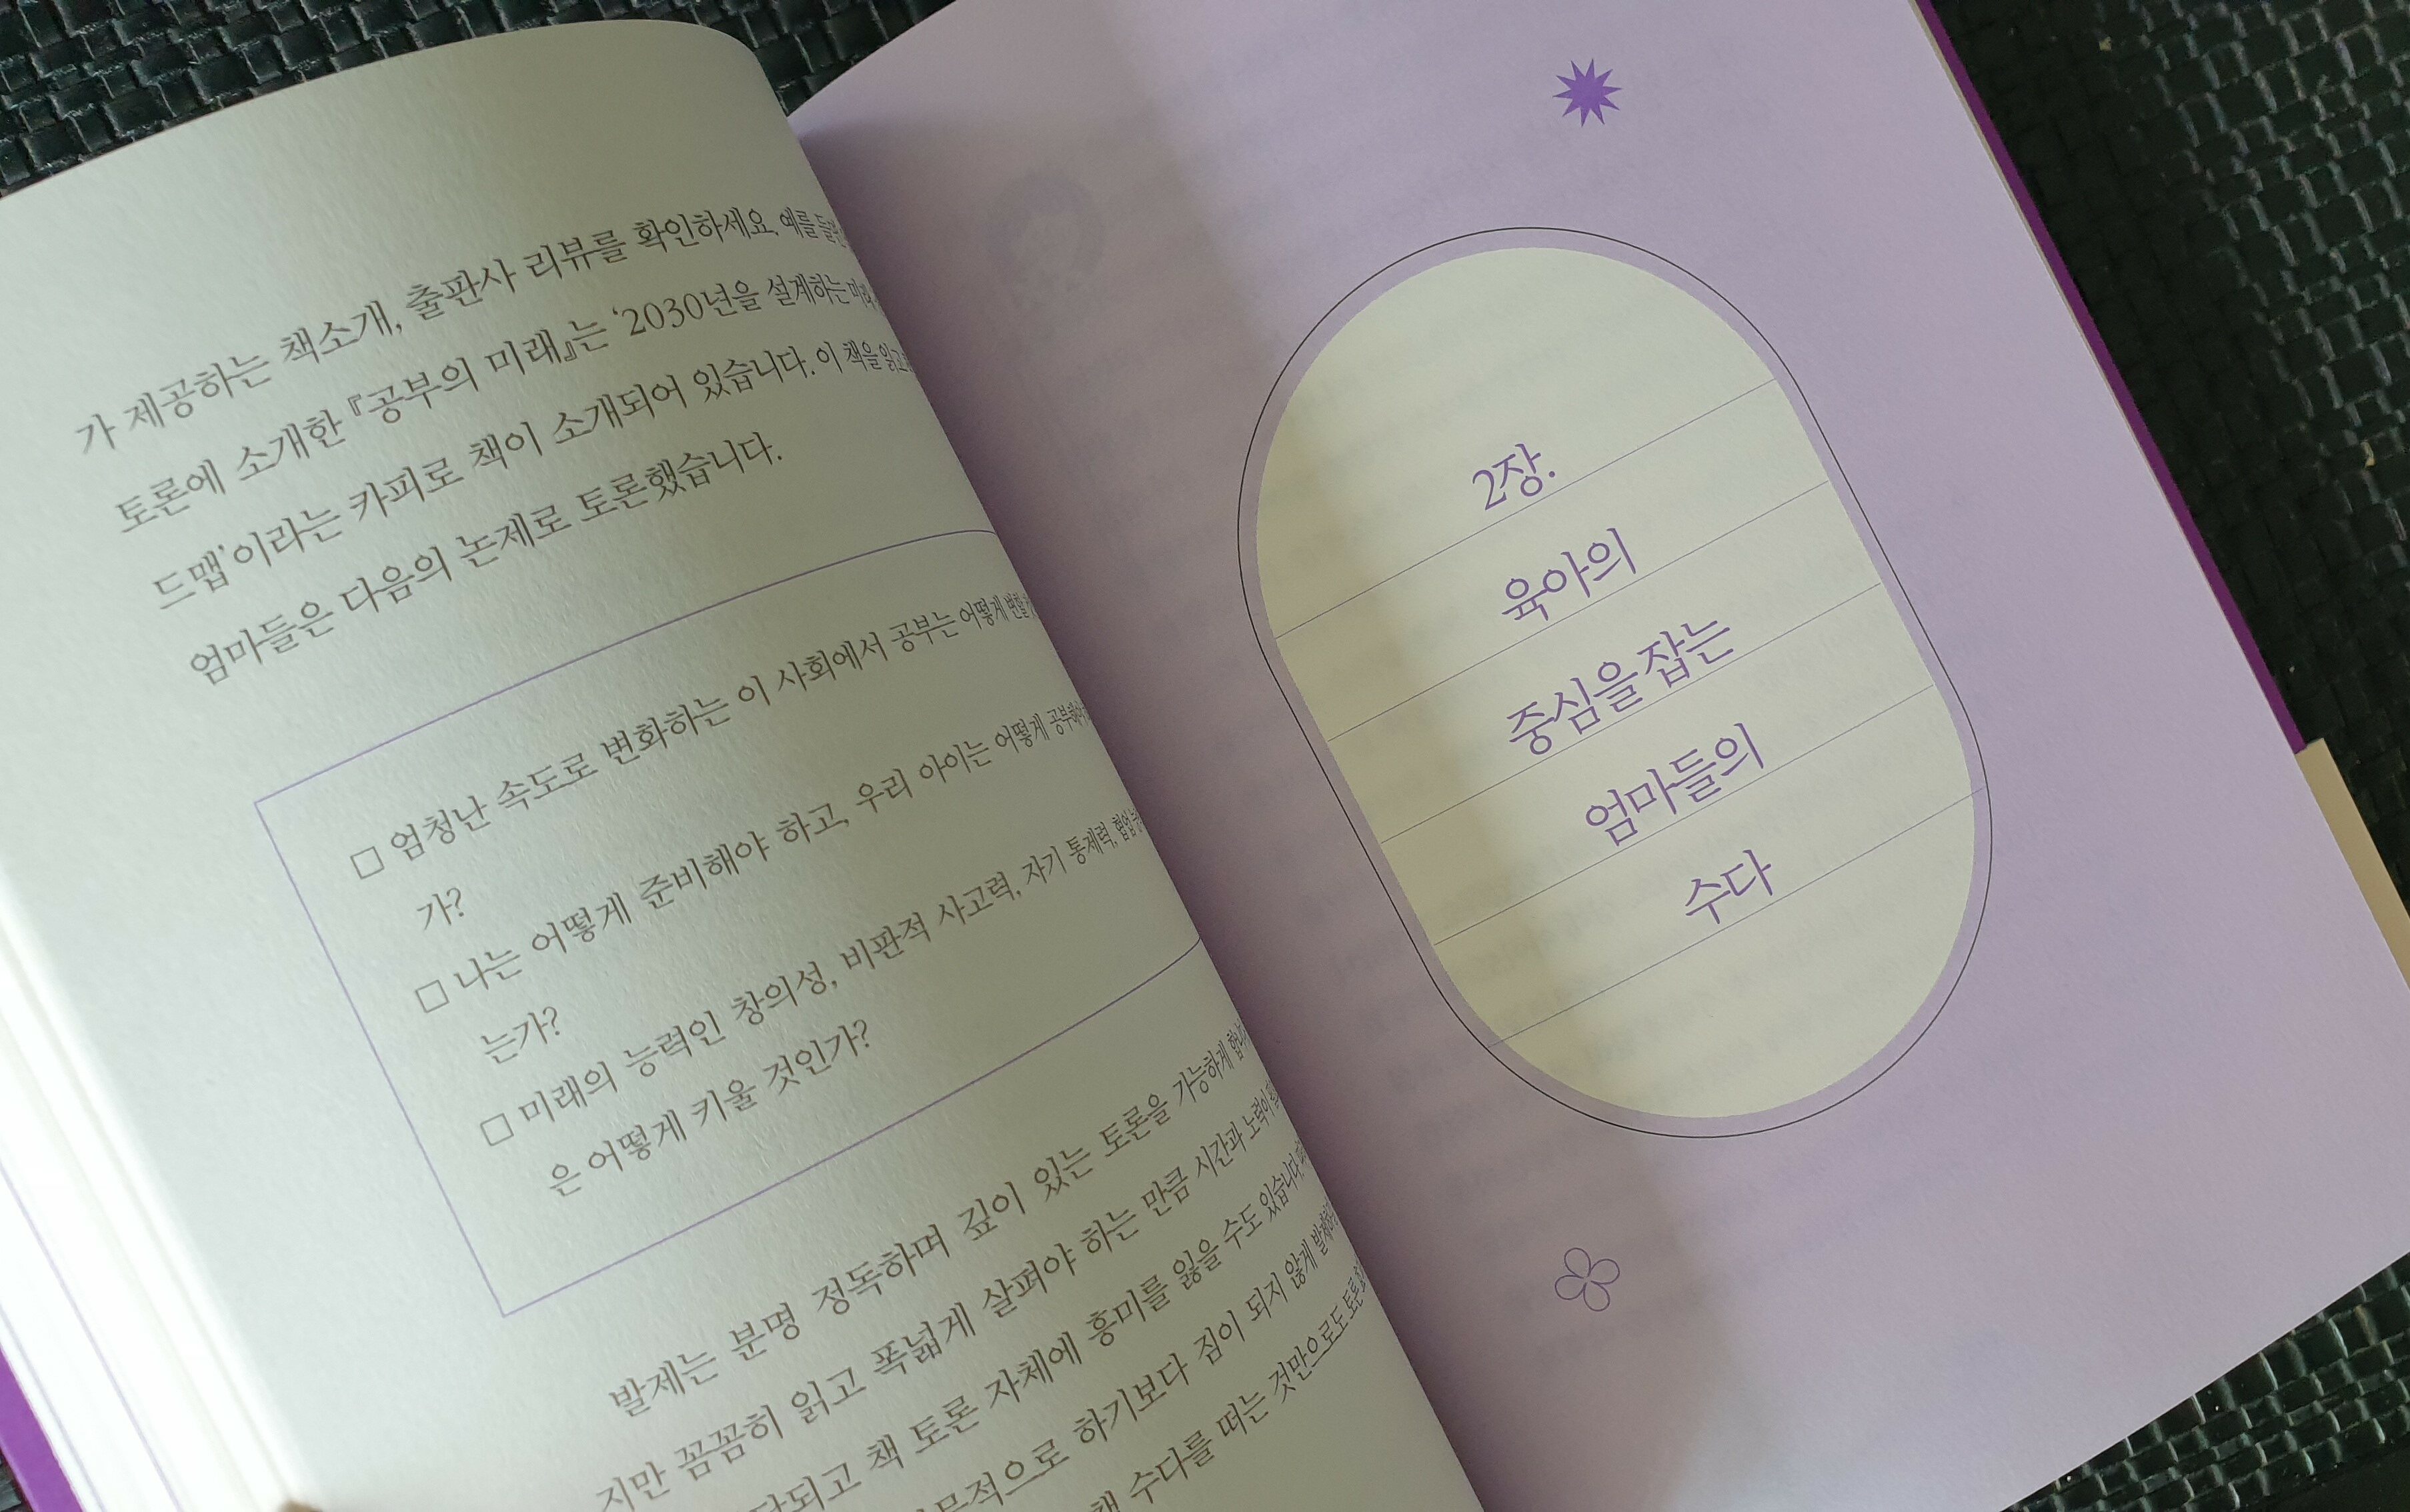 가 제공하는 책소개, 출판사 리뷰를 확인하세요. 예를 들면
토론에 소개한 『공부의 미래』는 ‘2030년을 설계하는 미래
드맵’이라는 카피로 책이 소개되어 있습니다. 이 책을 읽고
엄마들은 다음의 논제로 토론했습니다.
□ 엄청난 속도로 변화하는 이 사회에서 공부는 어떻게 변할
가?
□ 나는 어떻게 준비해야 하고, 우리 아이는 어떻게 공부해야
는가?
□ 미래의 능력인 창의성, 비판적 사고력, 자기 통제력, 협업
은 어떻게 키울 것인가?
발제는 분명 정독하며 깊이 있는 토론을 가능하게 합니
지만 꼼꼼히 읽고 폭넓게 살펴야 하는 만큼 시간과 노력이
되고 책 토론 자체에 흥미를 잃을 수도 있습니다.
적으로 하기보다 짐이 되지 않게
책 수다를 떠는 것만으로도 토론
2장.
육아의
중심을 잡는
엄마들의
수다